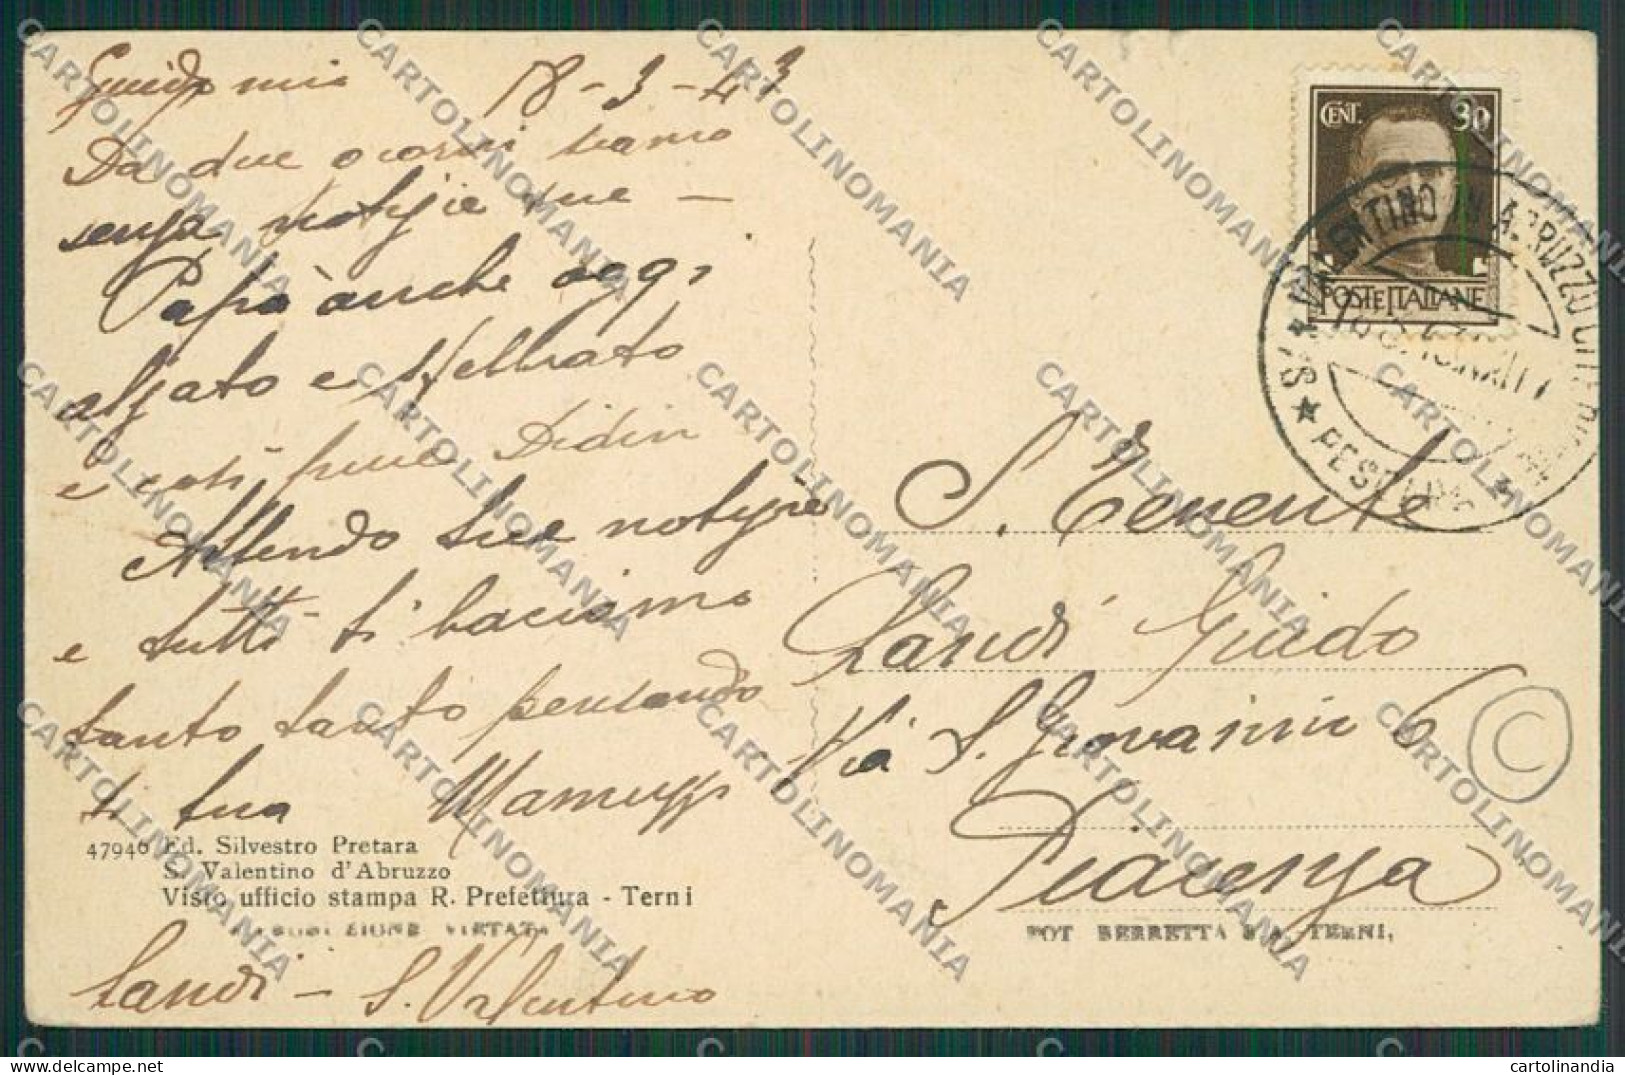 Guido mio 18-3-43
Da due o corni siamo
senza notizie tue -
Papà anche oggi
alzato e sfebbrato
e così pure Didin
Attendo tue notizie
e tutti ti baciamo
tanto tanto pensando
ti tua
47946 Ed. Silvestro Pretara
S. Valentino d'Abruzzo
Visto ufficio stampa R. Prefettura - Terni
RIPRODUZIONE VIETATA
Landi - S. Valentino
CENT. 30
POSTE ITALIANE
S. VALENTINO IN ABRUZZO CITERIORE
★ PESCARA ★
S. Tenente
Landi Guido
Via S. Giovanni 6
Piacenza
C
FOT BERRETTA S.A. TERNI.
CARTOLINOMANIA
cartolinandia